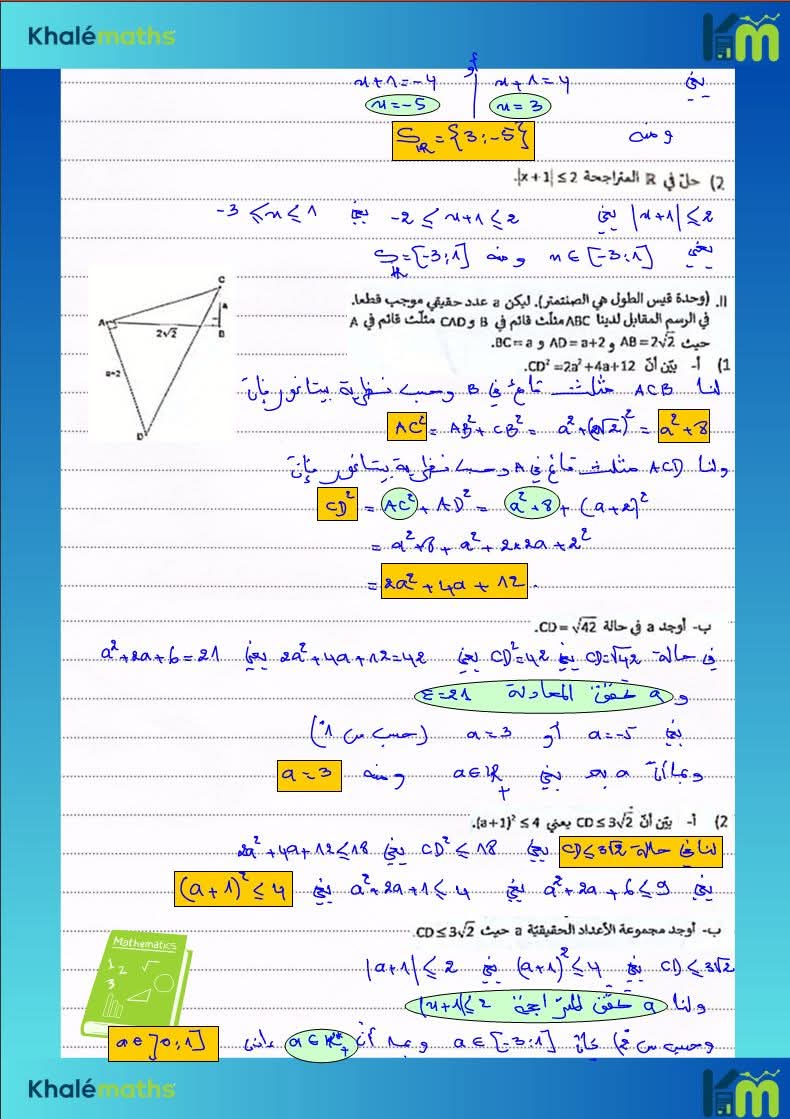 Khalémaths
يعني x+1=4 أو x+1=-4
x=3 x=-5
ومنه S_IR={3;-5}
2) حلّ في ℝ المتراجحة |x+1|≤2.
|x+1|≤2 يعني -2≤x+1≤2 يعني -3≤x≤1
يعني x∈[-3;1] ومنه S_IR=[-3;1]
II. (وحدة قيس الطول هي الصنتمتر). ليكن a عدد حقيقي موجب قطعا.
في الرسم المقابل لدينا ABC مثلّث قائم في B و CAD مثلّث قائم في A
حيث AB=2√2 و AD=a+2 و BC=a.
C
A
a
2√2
B
a+2
D
1) أ- بيّن أنّ CD²=2a²+4a+12.
لنا ACB مثلث قائم في B وحسب نظرية بيتاغور فإن
AC²=AB²+CB²=a²+(2√2)²=a²+8
ولنا ACD مثلث قائم في A وحسب نظرية بيتاغور فإن
CD²=AC²+AD²=a²+8+(a+2)²
=a²+8+a²+2×2a+2²
=2a²+4a+12.
ب- أوجد a في حالة CD=√42.
في حالة CD=√42 يعني CD²=42 يعني 2a²+4a+12=42 يعني a²+2a+6=21
و a تحقق المعادلة E=21
يعني a=-5 أو a=3 (حسب س 1)
وبما أن a بعد يعني a∈IR₊ ومنه a=3
2) أ- بيّن أنّ CD≤3√2 يعني (a+1)²≤4.
لنا في حالة CD≤3√2 يعني CD²≤18 يعني 2a²+4a+12≤18
يعني a²+2a+6≤9 يعني a²+2a+1≤4 يعني (a+1)²≤4
ب- أوجد مجموعة الأعداد الحقيقيّة a حيث CD≤3√2.
CD≤3√2 يعني (a+1)²≤4 يعني |a+1|≤2
ولنا a تحقق المتراجحة |x+1|≤2
وحسب س 2) فإن a∈[-3;1] وبما أن a∈IR*₊ فإن a∈]0;1]
Mathematics
1 2 √
3
Khalémaths